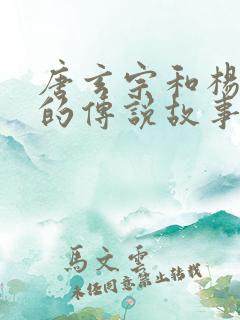 唐玄宗和楊
的傳說故事
馬文雲
未經同意禁止轉載